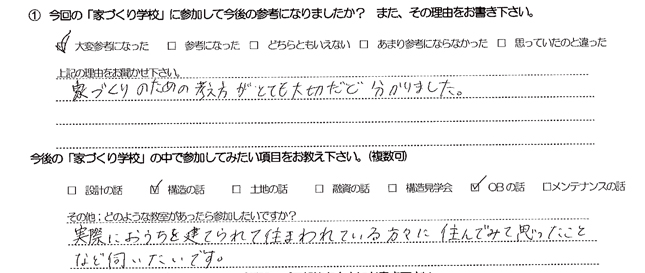 ① 今回の「家づくり学校」に参加して今後の参考になりましたか？ また、その理由をお書き下さい。
☑ 大変参考になった □ 参考になった □ どちらともいえない □ あまり参考にならなかった □ 思っていたのと違った
上記の理由をお聞かせ下さい。
家づくりのための考え方がとても大切だと分かりました。
今後の「家づくり学校」の中で参加してみたい項目をお教え下さい。（複数可）
□ 設計の話 ☑ 構造の話 □ 土地の話 □ 融資の話 □ 構造見学会 ☑ OBの話 □メンテナンスの話
その他：どのような教室があったら参加したいですか？
実際におうちを建てられて住まわれている方々に住んでみて思ったこと
など伺いたいです。